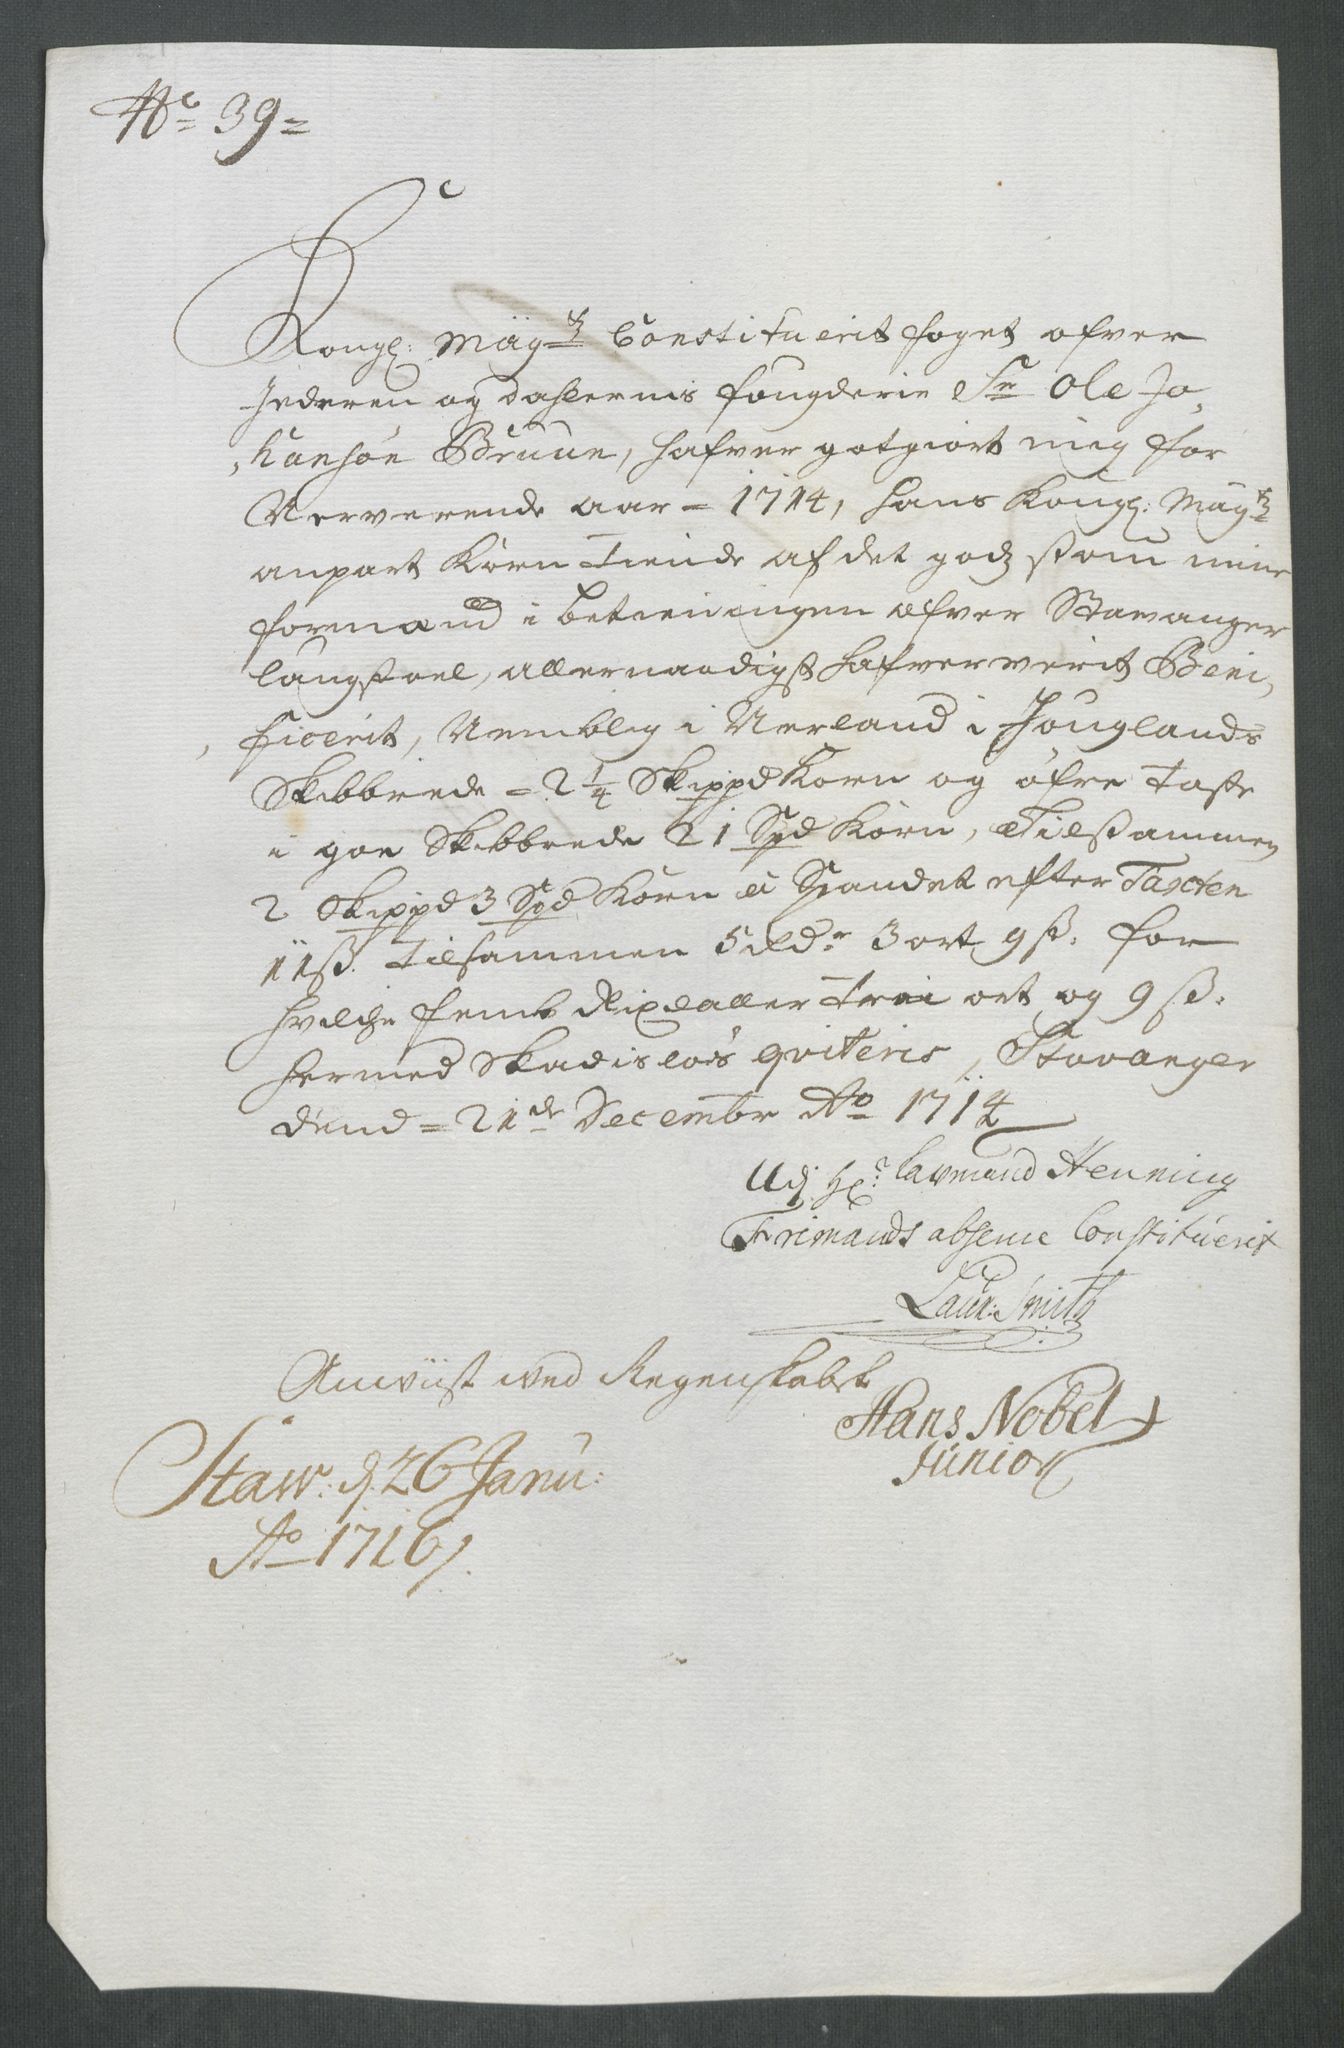 No 39=
Kongl: Mäytz Constituerit foget ofver
Jederen og Dahlernis fougderie Sr Ole Jo,
,hanhsøn Bruun, hafver gotgiort mig for
Nerverende aar = 1714, hans Kongl: Mäytz
anpart Korn Tiende af det godz som min
formand i betieningen ofver Stavanger
laugstoel, allernaadigst hafver verit Beni,
, ficerit, Nemblig i Nerland i
Skibbrede = 2 1/4 Skippd Korn og øfre Taste
i goe Skibbrede 2 1 Spd Korn, Tilsammen
2 Skippd 3 Spd Korn à Spandet efter Taxten
11 ß. Tilsammen 5 Rdr 3 ort 9 ß. for
hvilche femb Rixdaller Trei ort og 9 ß.
hermed Skadisløs qviteris, Stavanger
dend = 21de Decembr Ao 1714
Udj Hr: Lavmand Henning
Frimands absence Constituerit
Laur: Smith
Anviist ved Regenskabet
Hans Nobel
Junior
Staw: d. 26 Janu:
Ao 1716,